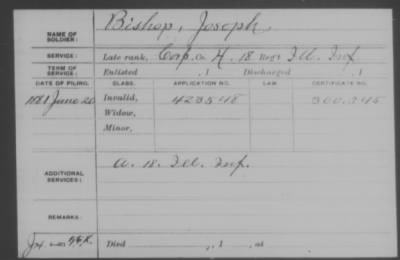 NAME OF SOLDIER: Bishop, Joseph
SERVICE: Late rank, Corp. Co. H, 18 Reg't Ill. Inf.
TERM OF SERVICE: Enlisted , 1 Discharged , 1
DATE OF FILING. CLASS. APPLICATION NO. LAW. CERTIFICATE NO.
1881 June 20 Invalid, 423548 300.245
Widow,
Minor,
ADDITIONAL SERVICES: A. 18. Ill. Inf.
REMARKS:
Died , 1 , at